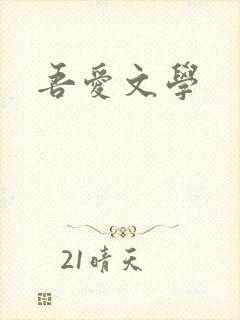 吾愛文學
21晴天